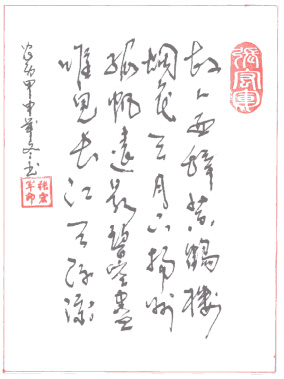 故人西辭黃鶴樓
烟花三月下揚州
孤帆遠影碧空盡
唯見長江天際流
甲申年冬